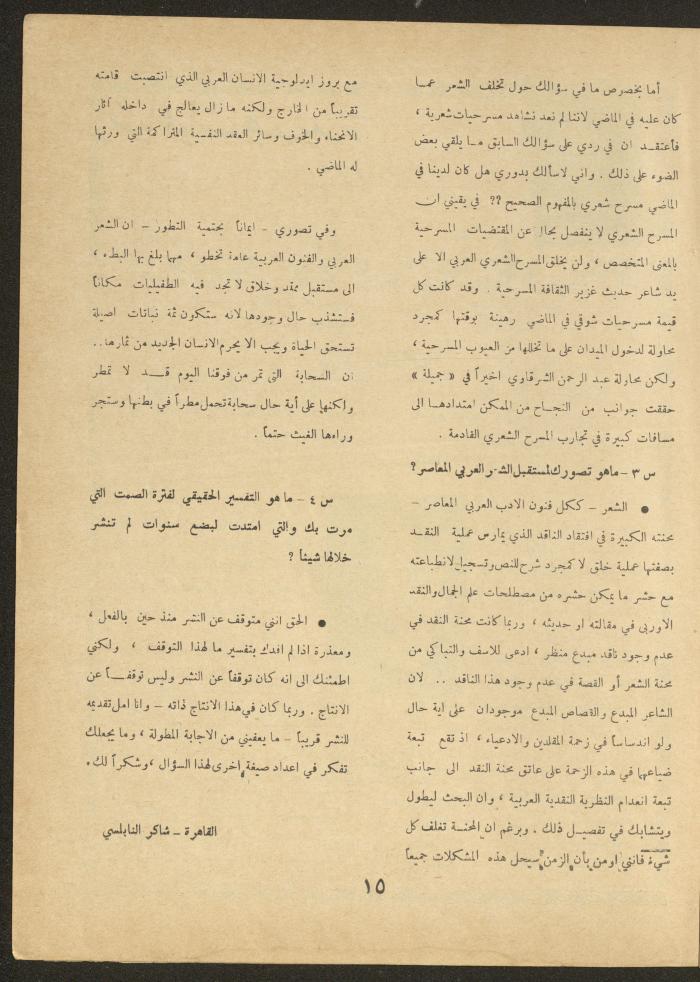 أما بخصوص ما في سؤالك حول تخلف الشعر عمـا
كان عليه في الماضي لاننا لم نعد نشاهد مسرحيات شعرية ،
فأعتقـد ان في ردي على سؤالك السابق مـا يلقي بعض
الضوء على ذلك . واني لاسألك بدوري هل كان لدينا في
الماضي مسرح شعري بالمفهوم الصحيح ؟؟ في يقيني ان
المسرح الشعري لا ينفصل بحال عن المقتضيات المسرحية
بالمعنى المتخصص ، ولن يخلق المسرح الشعري العربي الا على
يد شاعر حديث غزير الثقافة المسرحية . وقد كانت كل
قيمة مسرحيات شوقي في الماضي رهينة بوقتها كمجرد
محاولة لدخول الميدان على ما تخللها من العيوب المسرحية ،
ولكن محاولة عبد الرحمن الشرقاوي اخيراً في « جميلة »
حققت جوانب من النجـاح من الممكن امتدادهـا الى
مسافات كبيرة في تجارب المسرح الشعري القادمة .
س ٣ – ماهو تصورك لمستقبل الشعر العربي المعاصر ؟
● الشعر – ككل فنون الادب العربي المعاصر –
محنته الكبيرة في افتقاد الناقد الذي يمارس عملية النقـد
بصفتها عملية خلق لا كمجرد شرح للنص وتسجيل لانطباعته
مع حشر ما يمكن حشره من مصطلحات علم الجمال والنقد
الاوربي في مقالته او حديثه ، وربما كانت محنة النقد في
عدم وجود ناقد مبدع منظر ، ادعى للاسف والتباكي من
محنة الشعر أو القصة في عدم وجود هذا الناقد .. لان
الشاعر المبدع والقصاص المبدع موجودان على اية حال
ولو اندساساً في زحمة المقلدين والادعياء ، اذ تقع تبعة
ضياعهما في هذه الزحمة على عاتق محنة النقد الى جانب
تبعة انعدام النظرية النقدية العربية ، وان البحث ليطول
ويتشابك في تفصيـل ذلك . وبرغم ان المحنـة تغلف كل
شيء فانني اومن بأن الزمن سيحل هذه المشكلات جميعاً
مع بروز ايدلوجية الانسان العربي الذي انتصبت قامته
تقريباً من الخارج ولكنه ما زال يعالج في داخله آثار
الانحناء والخوف وسائر العقد النفسية المتراكمة التي ورثها
له الماضي .
وفي تصوري – ايماناً بحتمية التطور – ان الشعر
العربي والفنون العربية عامة تخطو ، مهما بلغ بها البطء ،
الى مستقبل ممتد وخلاق لا تجد فيه الطفيليات مكاناً
فستشذب حال وجودها لانه ستكون ثمة نباتات اصيلة
تستحق الحياة ويجب الا يحرم الانسان الجديد من ثمارها..
ان السحابة التي تمر من فوقنا اليوم قــد لا تمطر
ولكنها على أية حال سحابة تحمل مطراً في بطنها وستجر
وراءها الغيث حتماً .
س ٤ – ما هو التفسير الحقيقي لفترة الصمت التي
مرت بك والتي امتدت لبضع سنوات لم تنشر
خلالها شيئاً ؟
● الحق انني متوقف عن النشر منذ حين بالفعل ،
ومعذرة اذا لم افدك بتفسير ما لهذا التوقف ، ولكني
اطمئنك الى انه كان توقفاً عن النشر وليس توقفــاً عن
الانتاج . وربما كان في هذا الانتاج ذاته – وانا امل تقديمه
للنشر قريباً – ما يعفيني من الاجابة المطولة ، وما يجعلك
تفكر في اعداد صيغة اخرى لهذا السؤال ، وشكراً لك .
القاهرة – شاكر النابلسي
١٥